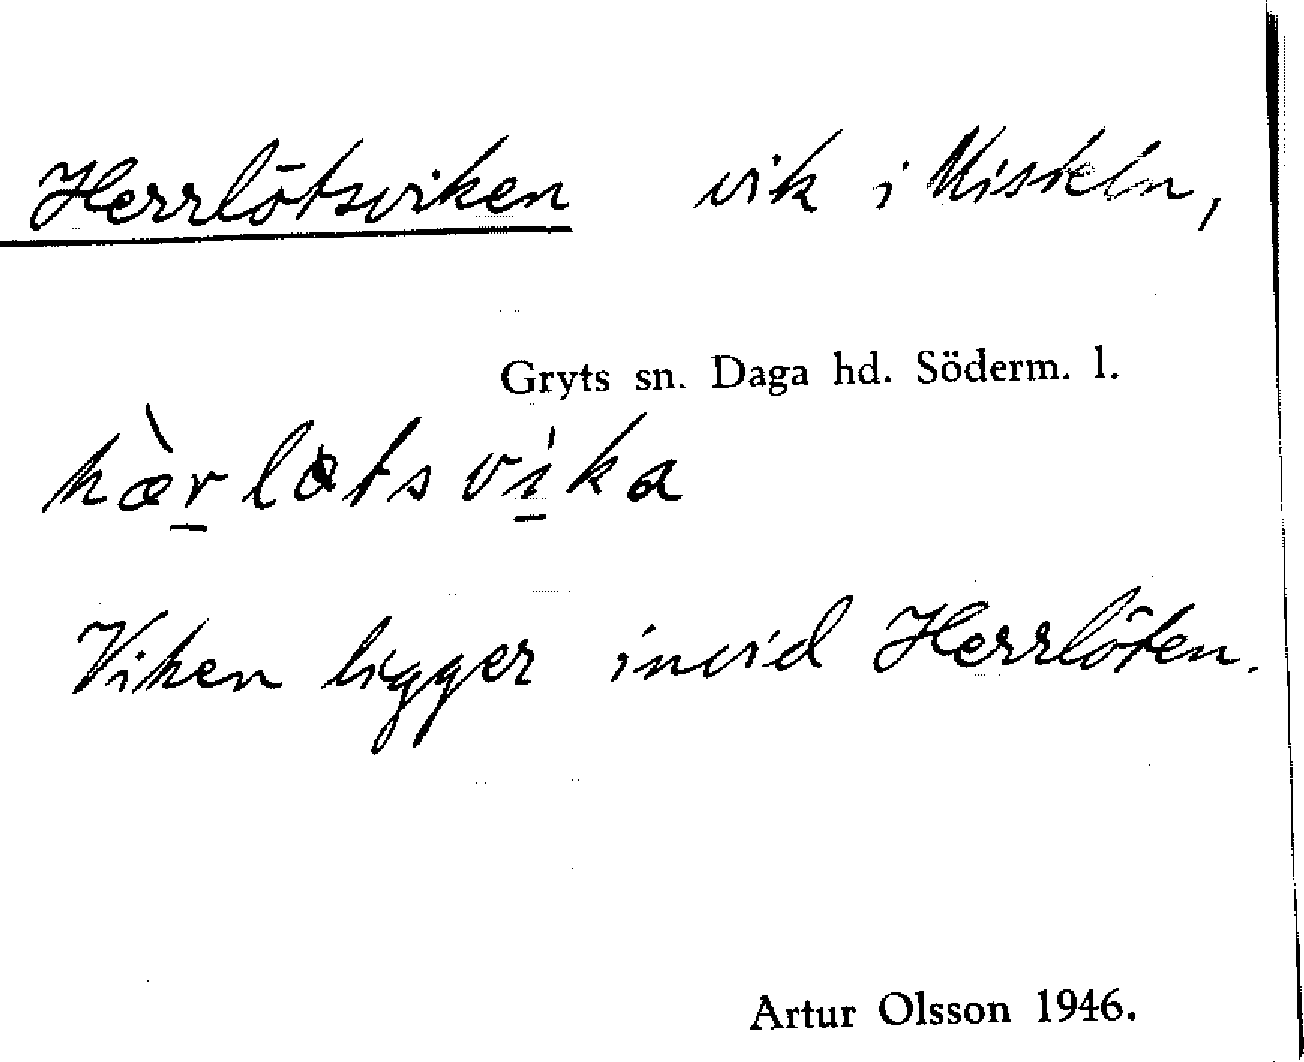 Herrlötsviken vik i Misteln,
Gryts sn. Daga hd. Söderm. l.
hæ̀r̲løtsvi̲̍ka
Viken ligger invid Herrlöten.
Artur Olsson 1946.